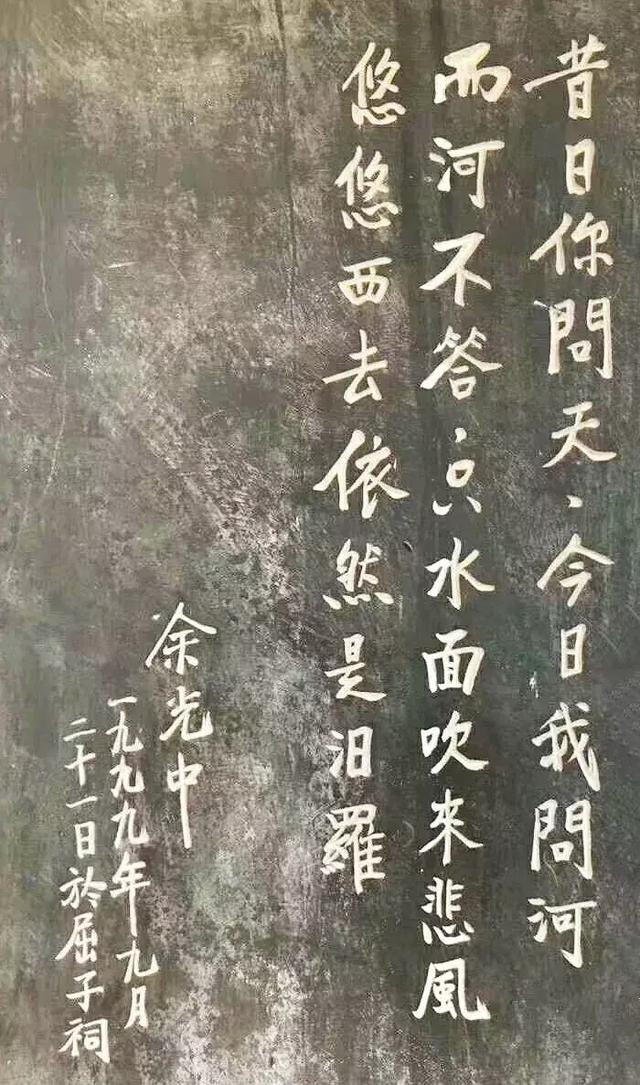 昔日你問天、今日我問河
而河不答、只水面吹來悲風
悠悠西去依然是汨羅
余光中
一九九九年九月
二十一日於屈子祠